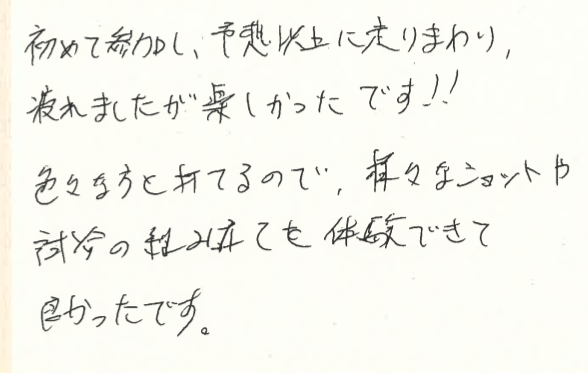 初めて参加し、予想以上に走りまわり,
疲れましたが楽しかったです!!
色々な方と打てるので、様々なショットや
試合の組み立ても体験できて
良かったです。